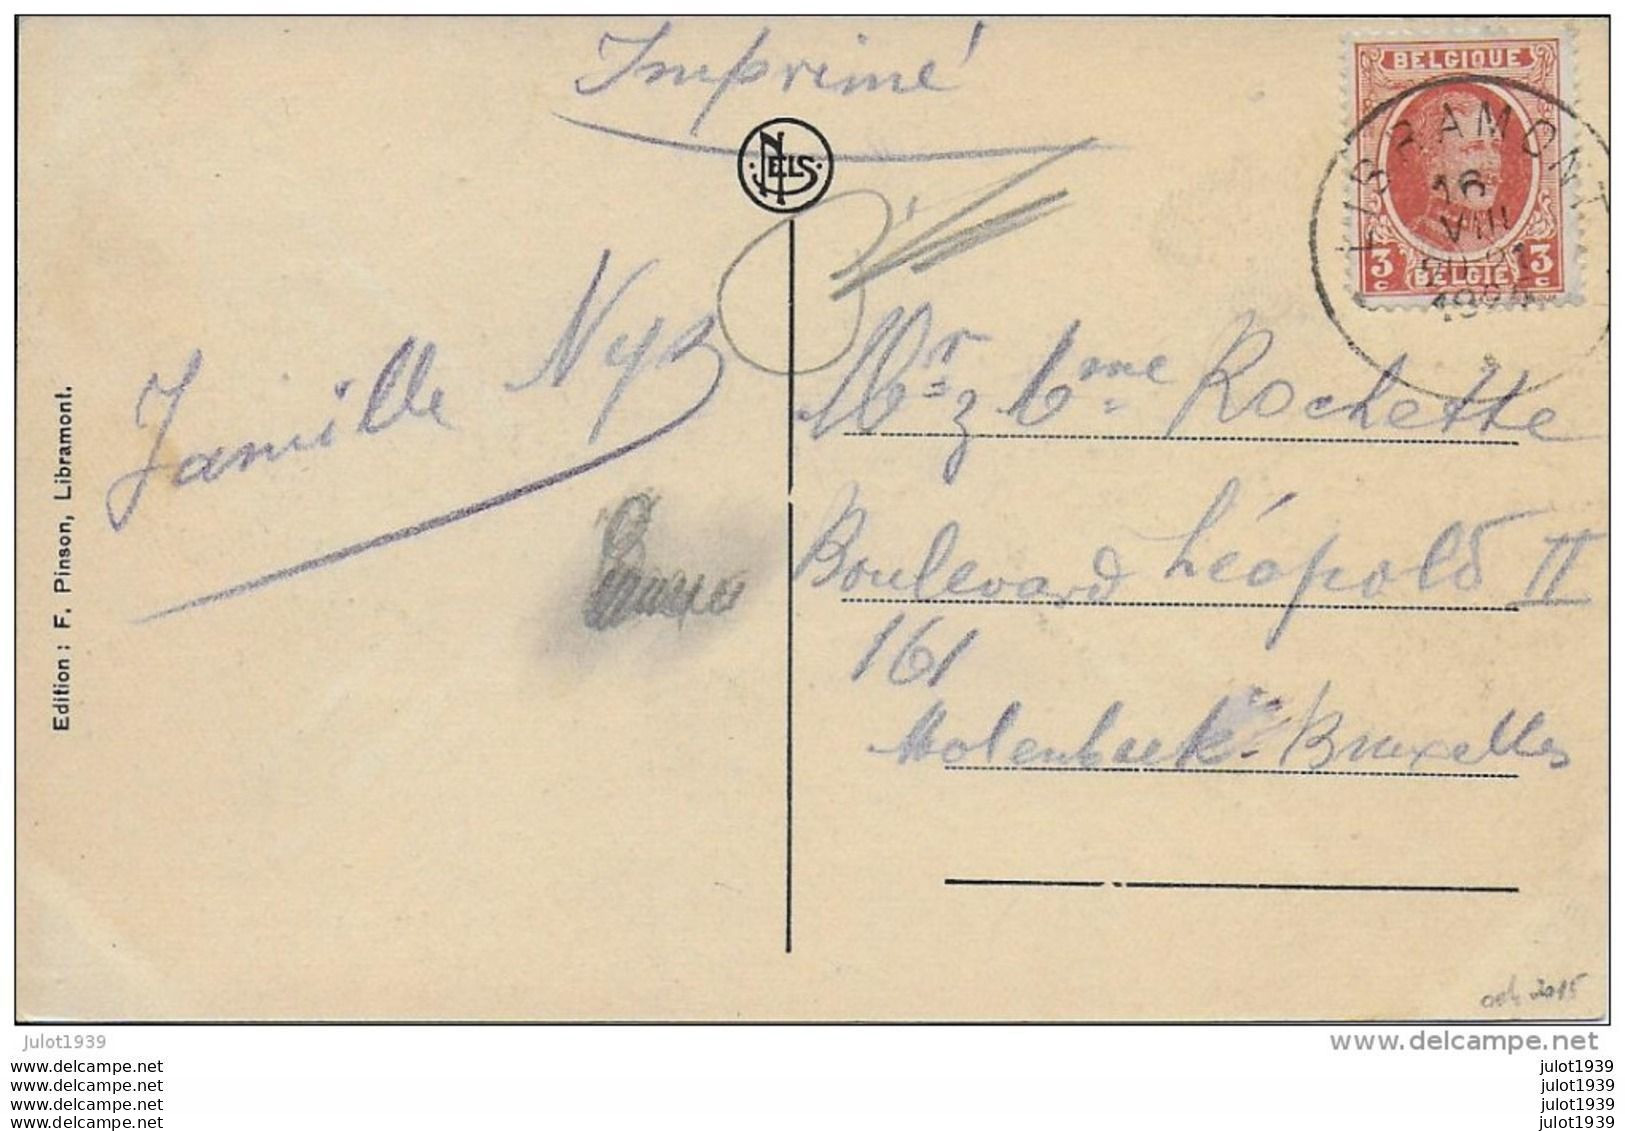 Imprimé
NELS
BELGIQUE
LIBRAMONT
16
VIII
20-21
3 c BELGIE 3 c
Famille Nys
Mr & Mme Rochette
Boulevard Léopold II
161
Molenbeek-Bruxelles
Edition : F. Pinson, Libramont.
2015
julot1939
www.delcampe.net
www.delcampe.net
www.delcampe.net
www.delcampe.net
www.delcampe.net
julot1939
julot1939
julot1939
julot1939